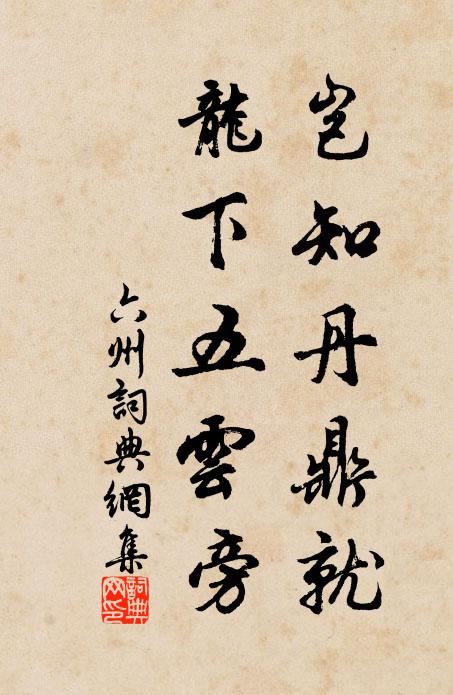 豈知丹鼎就
龍下五雲旁
六州詞典網集
詞典
网印